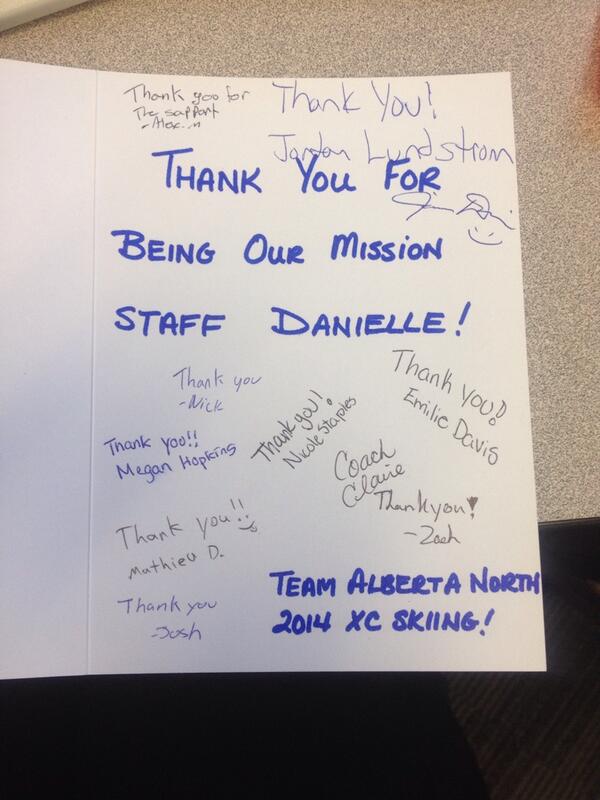 Thank you for
The support
Thank You!
Jordan Lundstrom
THANK YOU FOR
BEING OUR MISSION
STAFF DANIELLE!
Thank you
-Nick
Thank you!
Nicole Staples
Thank you!
Emilie Davis
Thank you!!
Megan Hopkins
Coach
Claire
Thank you!
-Zach
Thank you!!
Mathieu D.
Thank you
-Josh
TEAM ALBERTA NORTH
2014 XC SKIING!